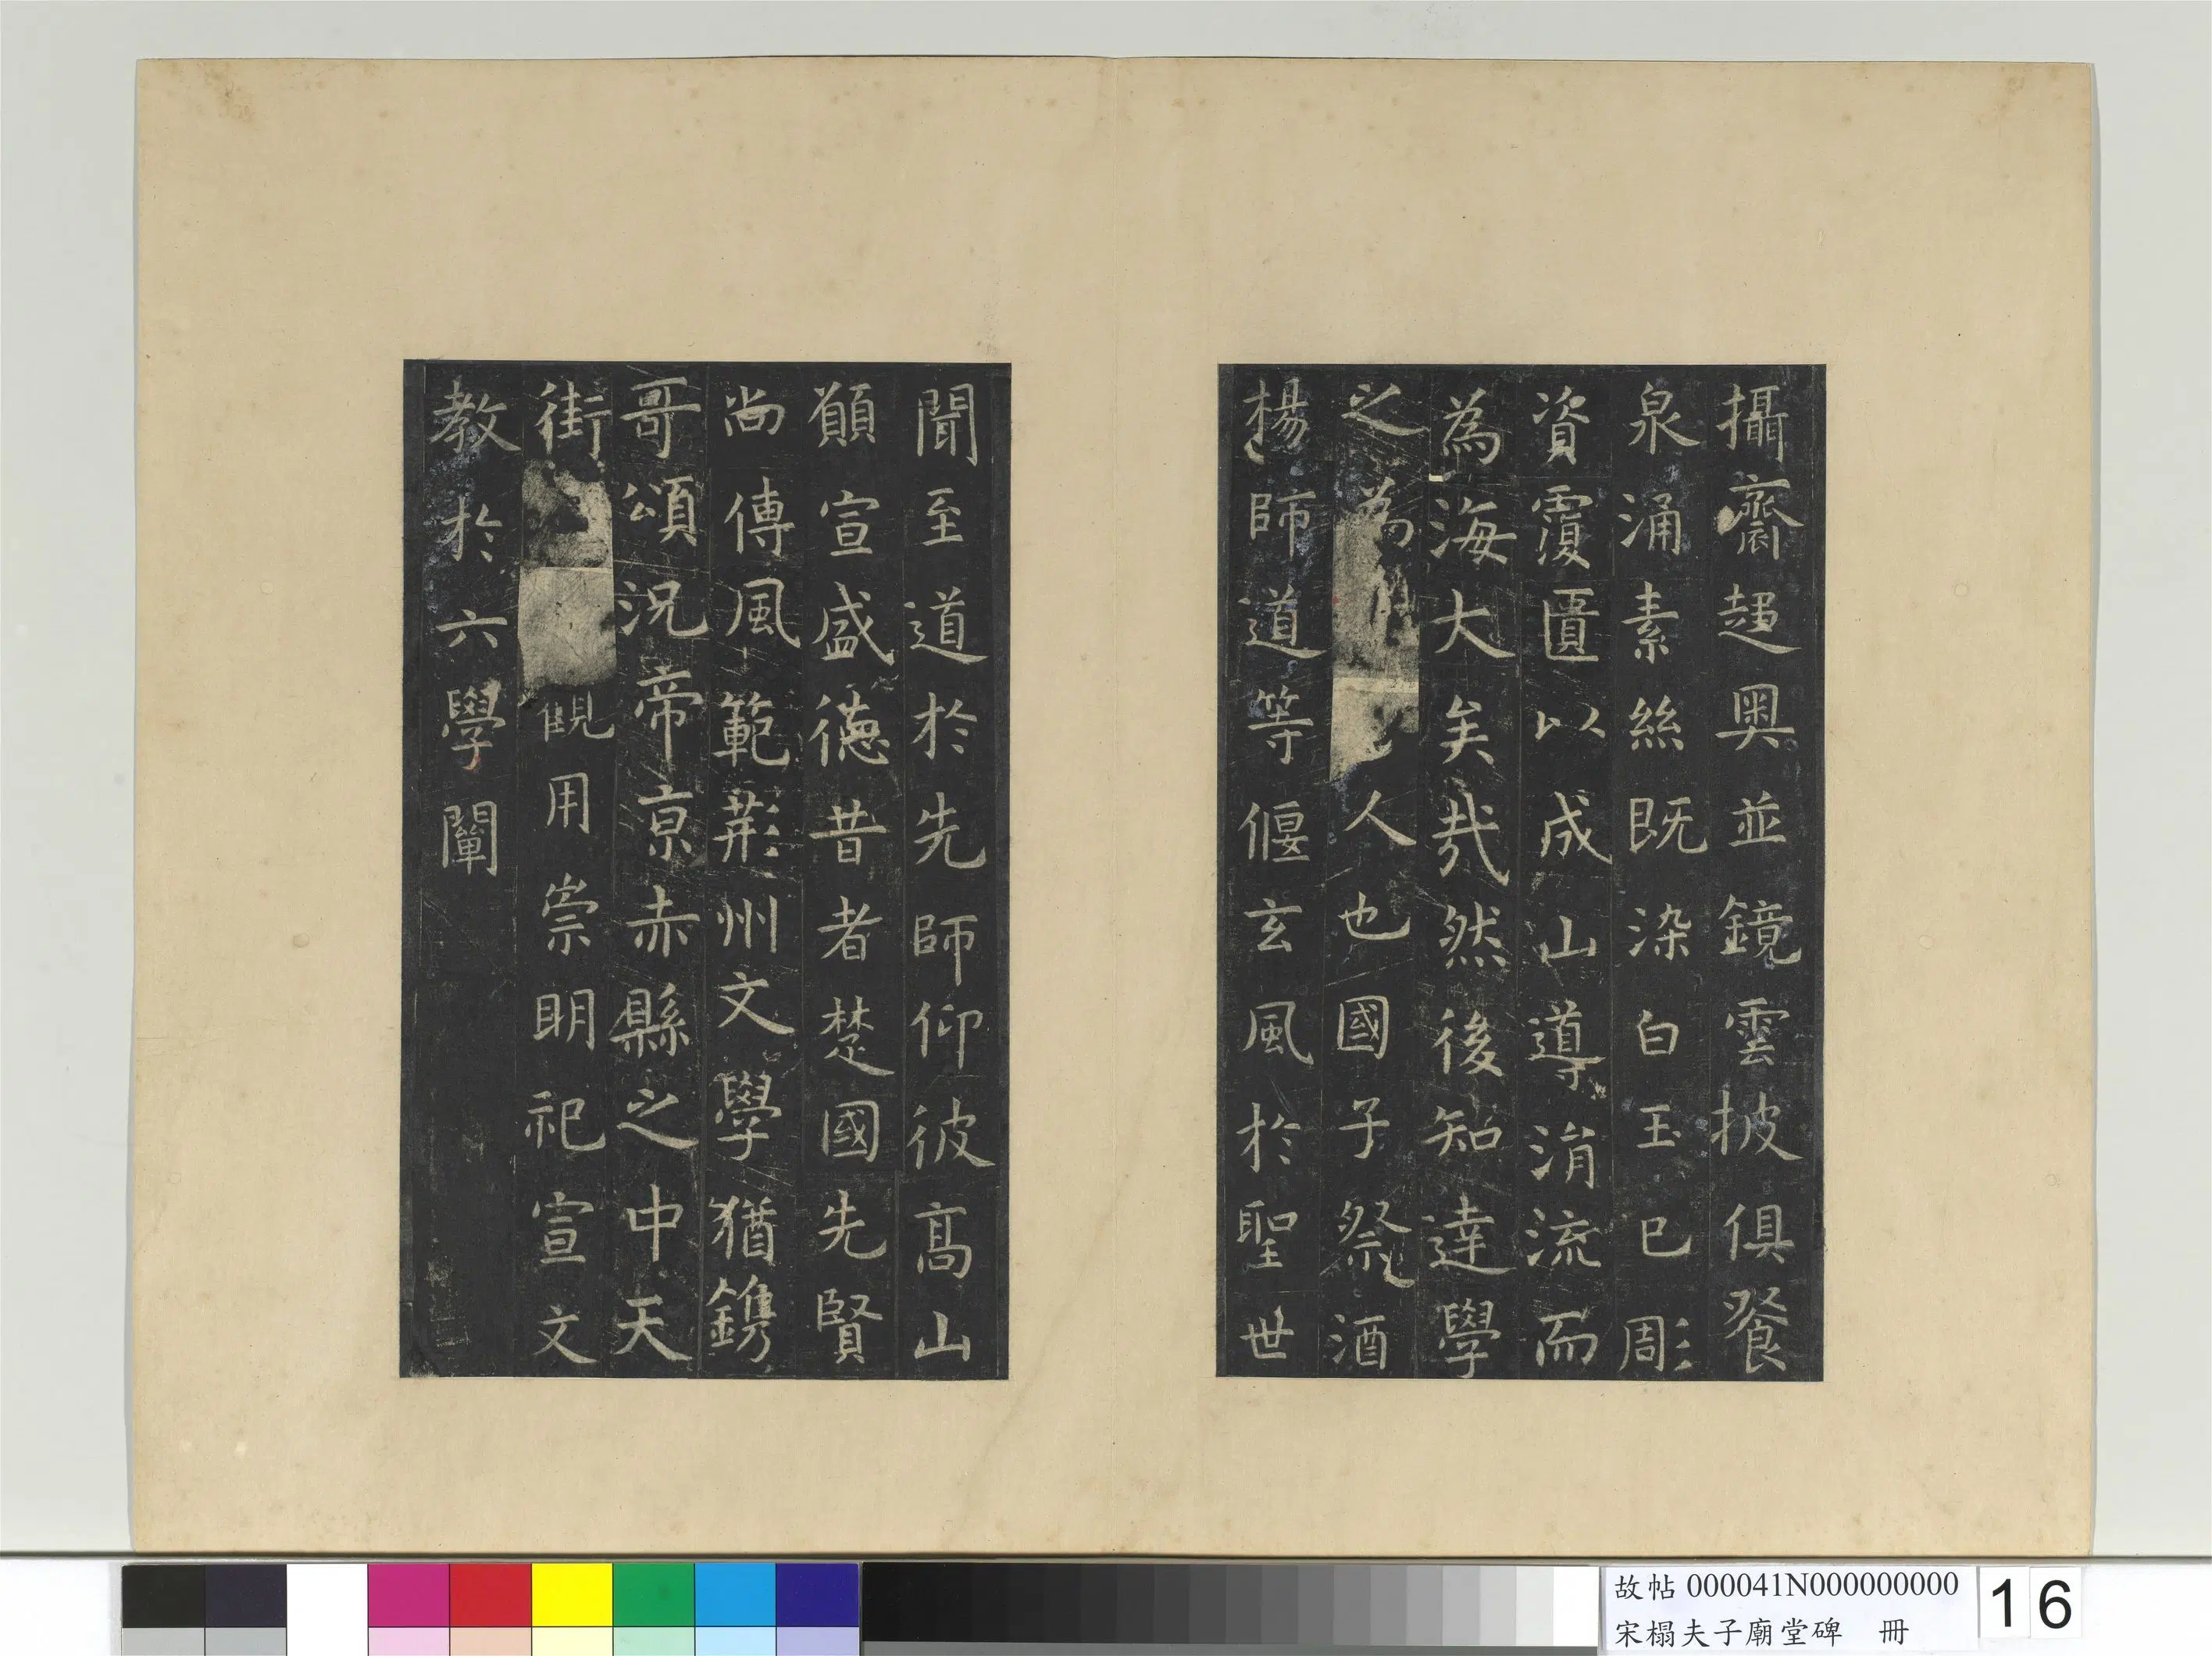 攝齋趍奧並鏡雲披俱飡
泉涌素絲既染白玉已彫
資覆匱以成山導涓流而
為海大矣哉然後知達學
之為人也國子祭酒
楊師道等偃玄風於聖世
聞至道於先師仰彼高山
願宣盛德昔者楚國先賢
尚傳風範荊州文學猶鐫
哥頌況帝京赤縣之中天
街觀用崇明祀宣文
教於六學闡
故帖 000041N000000000
宋榻夫子廟堂碑 冊
16